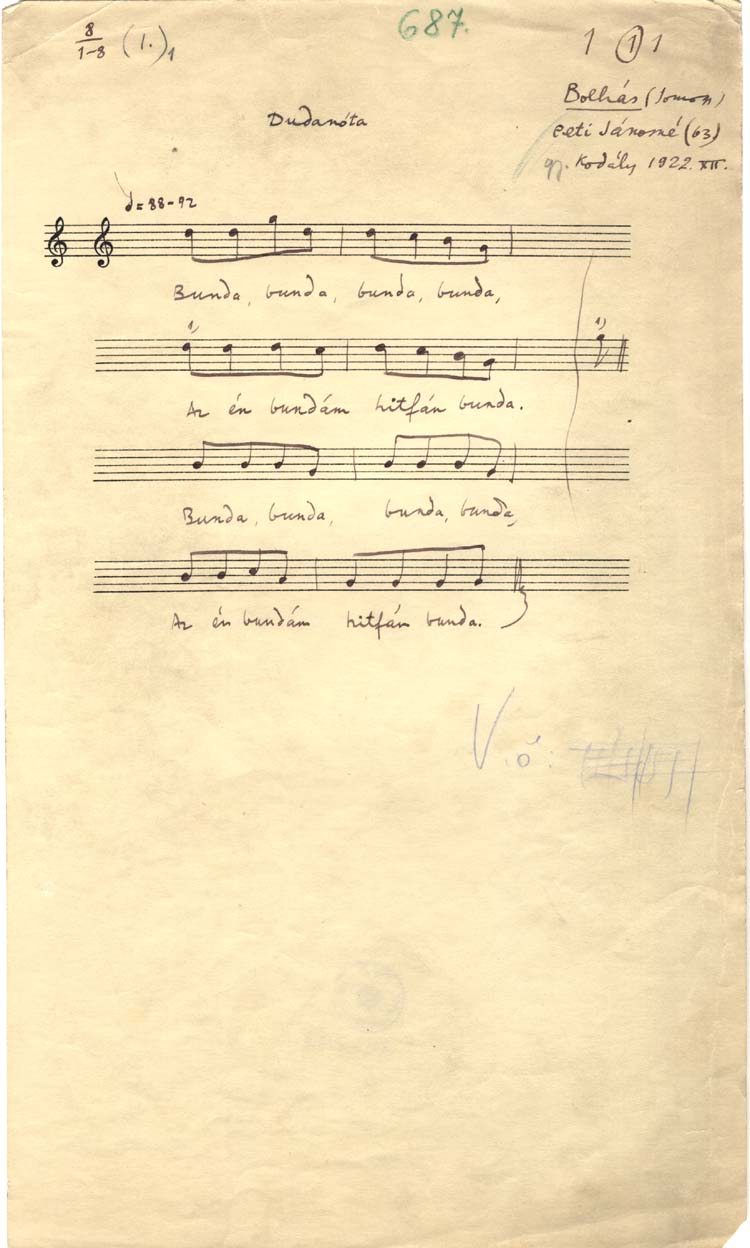 8/1-8 (1.)1
687.
1 1 1
Dudanóta
Bolhás (Somogy)
Peti Jánosné (63)
gy. Kodály 1922. XII.
= 88-92
Bunda, bunda, bunda, bunda,
1)
1)
Az én bundám hitfán bunda.
Bunda, bunda, bunda, bunda,
Az én bundám hitfán bunda.
V.ö: